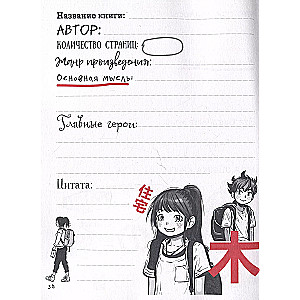 Название книги:
АВТОР:
КОЛИЧЕСТВО СТРАНИЦ:
Жанр произведения:
Основная мысль:
Главные герои:
Цитата:
住宅
木
38